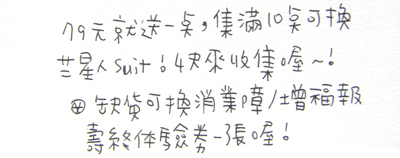 79元就送一点,集滿10點可換
芸星人suit!快來收集喔~!
缺貨可換消業障/增福報
壽終体驗券一張喔!